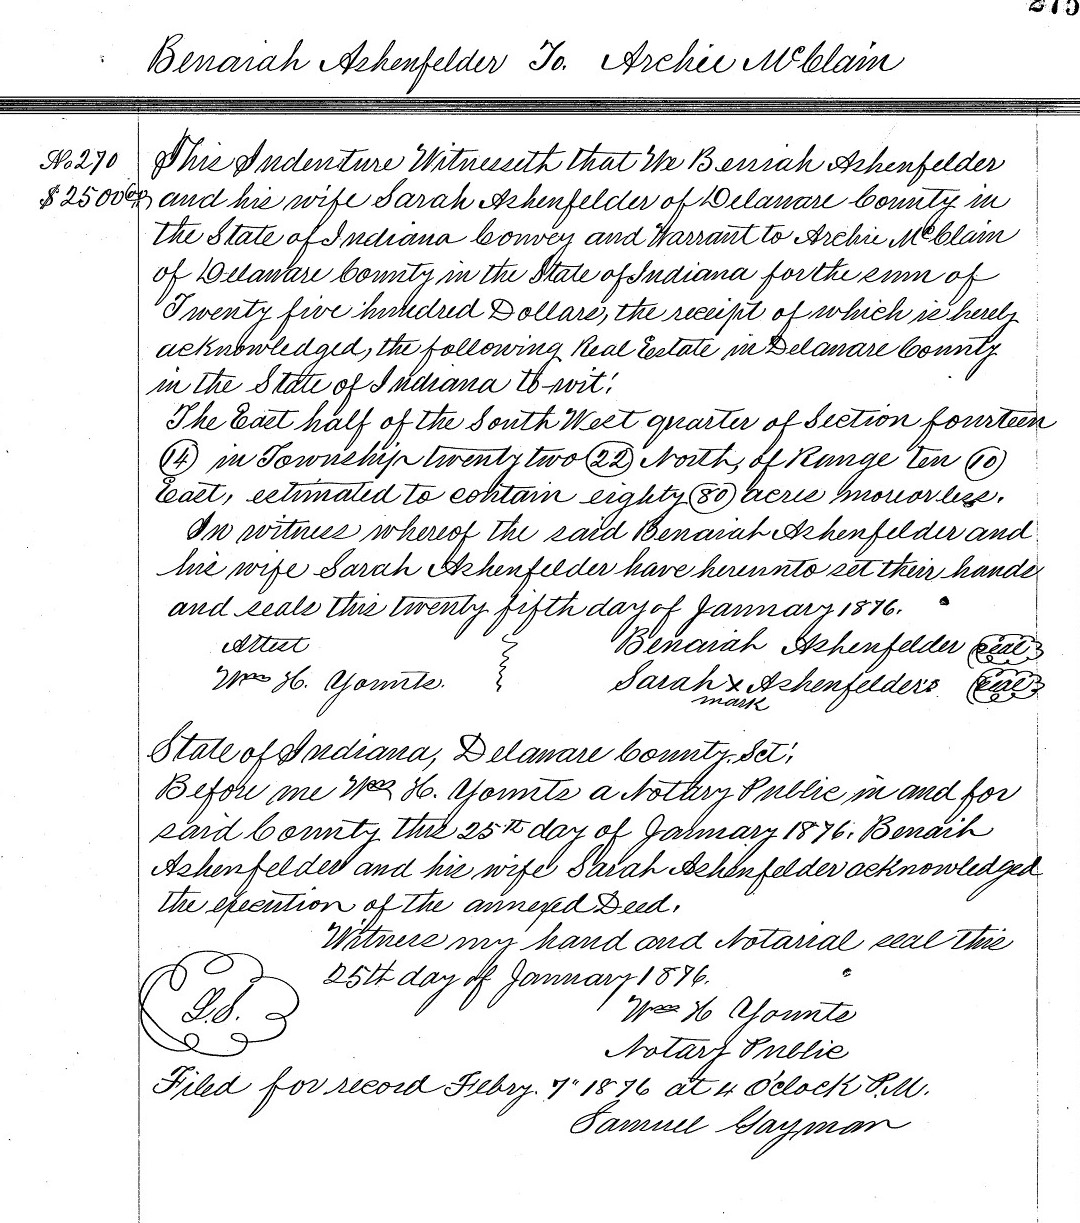 275
Benaiah Ashenfelder To. Archie McClain
No 270
$2500
This Indenture Witnesseth that We Beniah Ashenfelder
and his wife Sarah Ashenfelder of Delaware County in
the State of Indiana Convey and Warrant to Archie McClain
of Delaware County in the State of Indiana for the sum of
Twenty five hundred Dollars, the receipt of which is herely
acknowledged, the following Real Estate in Delaware County
in the State of Indiana to-wit:
The East half of the South West quarter of Section fourteen
(14) in Township twenty two (22) North, of Range ten (10)
East, estimated to contain eighty (80) acres more or less.
In witness whereof the said Benaiah Ashenfelder and
his wife Sarah Ashenfelder have hereunto set their hands
and seals this twenty fifth day of January 1876.
Attest
Benaiah Ashenfelder seal
Wm H. Younts.
Sarah x Ashenfelder seal
mark
State of Indiana, Delaware County. Sct:
Before me Wm H. Younts a Notary Public in and for
said County this 25th day of January 1876. Benaih
Ashenfelder and his wife Sarah Ashenfelder acknowledged
the execution of the annexed Deed.
Witness my hand and Notarial seal this
25th day of January 1876.
L.S.
Wm H Younts
Notary Public
Filed for record Febry. 7" 1876 at 4 O'clock P.M.
Samuel Gayman